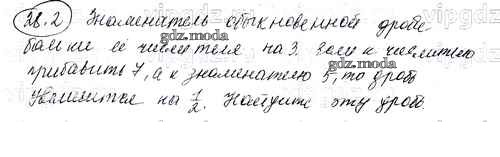 28.2 Знаменатель обыкновенной дроби
больше её числителя на 3. Если к числителю
прибавить 7, а к знаменателю 5, то дробь
Увеличится на 1/2. Найдите эту дробь.
vipgdz
gdz.moda
gdz.moda
gdz.moda